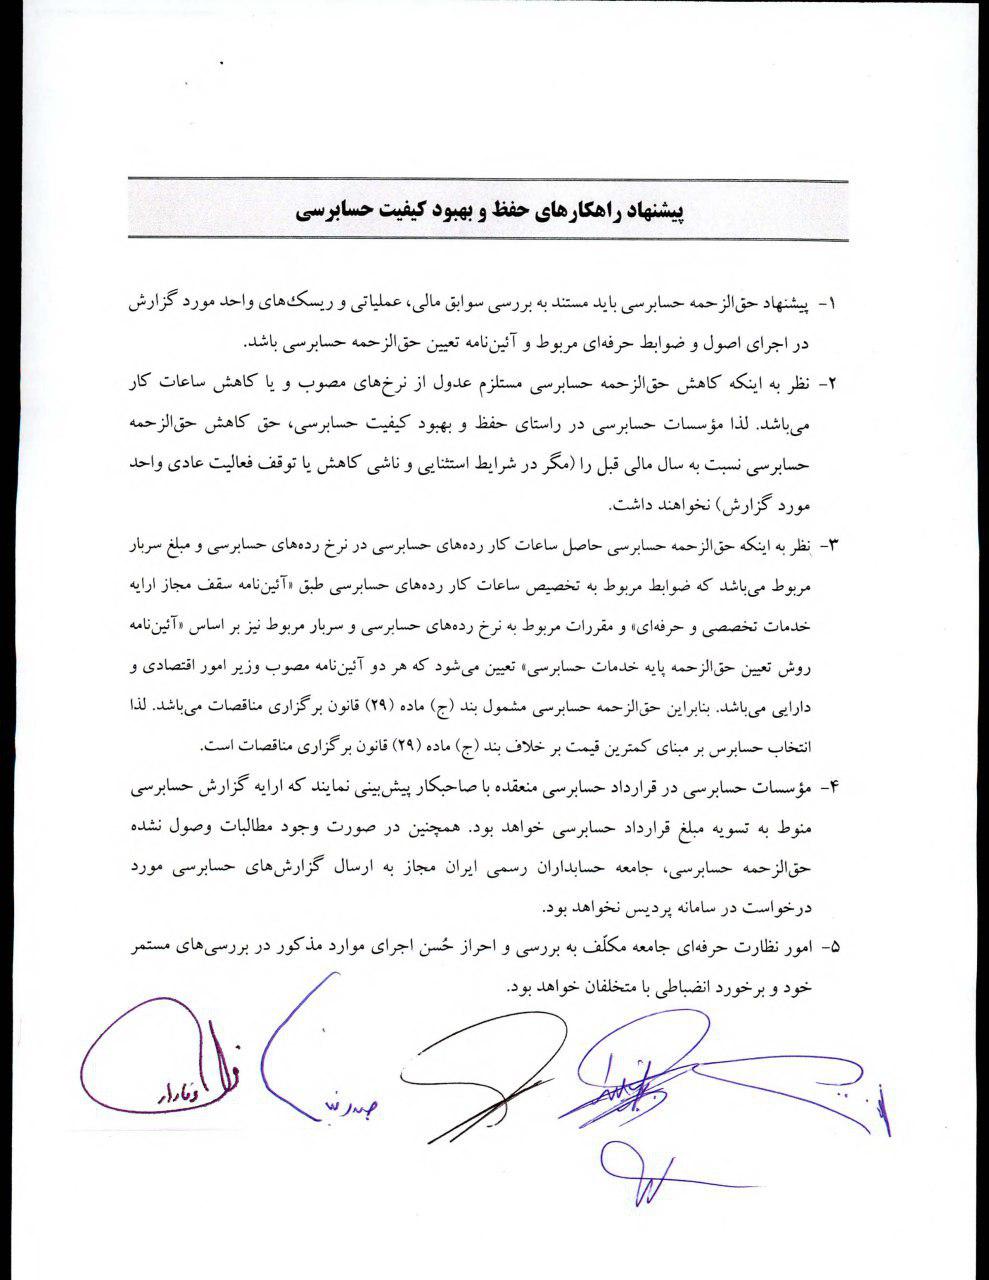 پیشنهاد راهکارهای حفظ و بهبود کیفیت حسابرسی
۱- پیشنهاد حق‌الزحمه حسابرسی باید مستند به بررسی سوابق مالی، عملیاتی و ریسک‌های واحد مورد گزارش
در اجرای اصول و ضوابط حرفه‌ای مربوط و آئین‌نامه تعیین حق‌الزحمه حسابرسی باشد.
۲- نظر به اینکه کاهش حق‌الزحمه حسابرسی مستلزم عدول از نرخ‌های مصوب و یا کاهش ساعات کار
می‌باشد. لذا مؤسسات حسابرسی در راستای حفظ و بهبود کیفیت حسابرسی، حق کاهش حق‌الزحمه
حسابرسی نسبت به سال مالی قبل را (مگر در شرایط استثنایی و ناشی کاهش یا توقف فعالیت عادی واحد
مورد گزارش) نخواهند داشت.
۳- نظر به اینکه حق‌الزحمه حسابرسی حاصل ساعات کار رده‌های حسابرسی در نرخ رده‌های حسابرسی و مبلغ سربار
مربوط می‌باشد که ضوابط مربوط به تخصیص ساعات کار رده‌های حسابرسی طبق «آئین‌نامه سقف مجاز ارایه
خدمات تخصصی و حرفه‌ای» و مقررات مربوط به نرخ رده‌های حسابرسی و سربار مربوط نیز بر اساس «آئین‌نامه
روش تعیین حق‌الزحمه پایه خدمات حسابرسی» تعیین می‌شود که هر دو آئین‌نامه مصوب وزیر امور اقتصادی و
دارایی می‌باشد. بنابراین حق‌الزحمه حسابرسی مشمول بند (ج) ماده (۲۹) قانون برگزاری مناقصات می‌باشد. لذا
انتخاب حسابرس بر مبنای کمترین قیمت بر خلاف بند (ج) ماده (۲۹) قانون برگزاری مناقصات است.
۴- مؤسسات حسابرسی در قرارداد حسابرسی منعقده با صاحبکار پیش‌بینی نمایند که ارایه گزارش حسابرسی
منوط به تسویه مبلغ قرارداد حسابرسی خواهد بود. همچنین در صورت وجود مطالبات وصول نشده
حق‌الزحمه حسابرسی، جامعه حسابداران رسمی ایران مجاز به ارسال گزارش‌های حسابرسی مورد
درخواست در سامانه پردیس نخواهد بود.
۵- امور نظارت حرفه‌ای جامعه مکلّف به بررسی و احراز حُسن اجرای موارد مذکور در بررسی‌های مستمر
خود و برخورد انضباطی با متخلفان خواهد بود.
وفادار